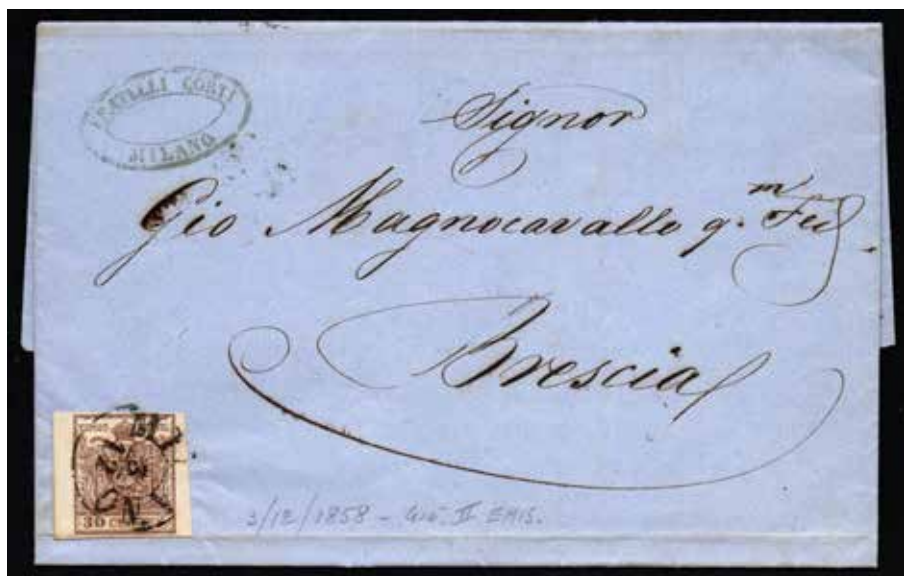 FRATELLI CORTI
MILANO
Signor
Gio Magnocavallo q.m
Brescia
30 CE
3/12/1858 - II EMIS.